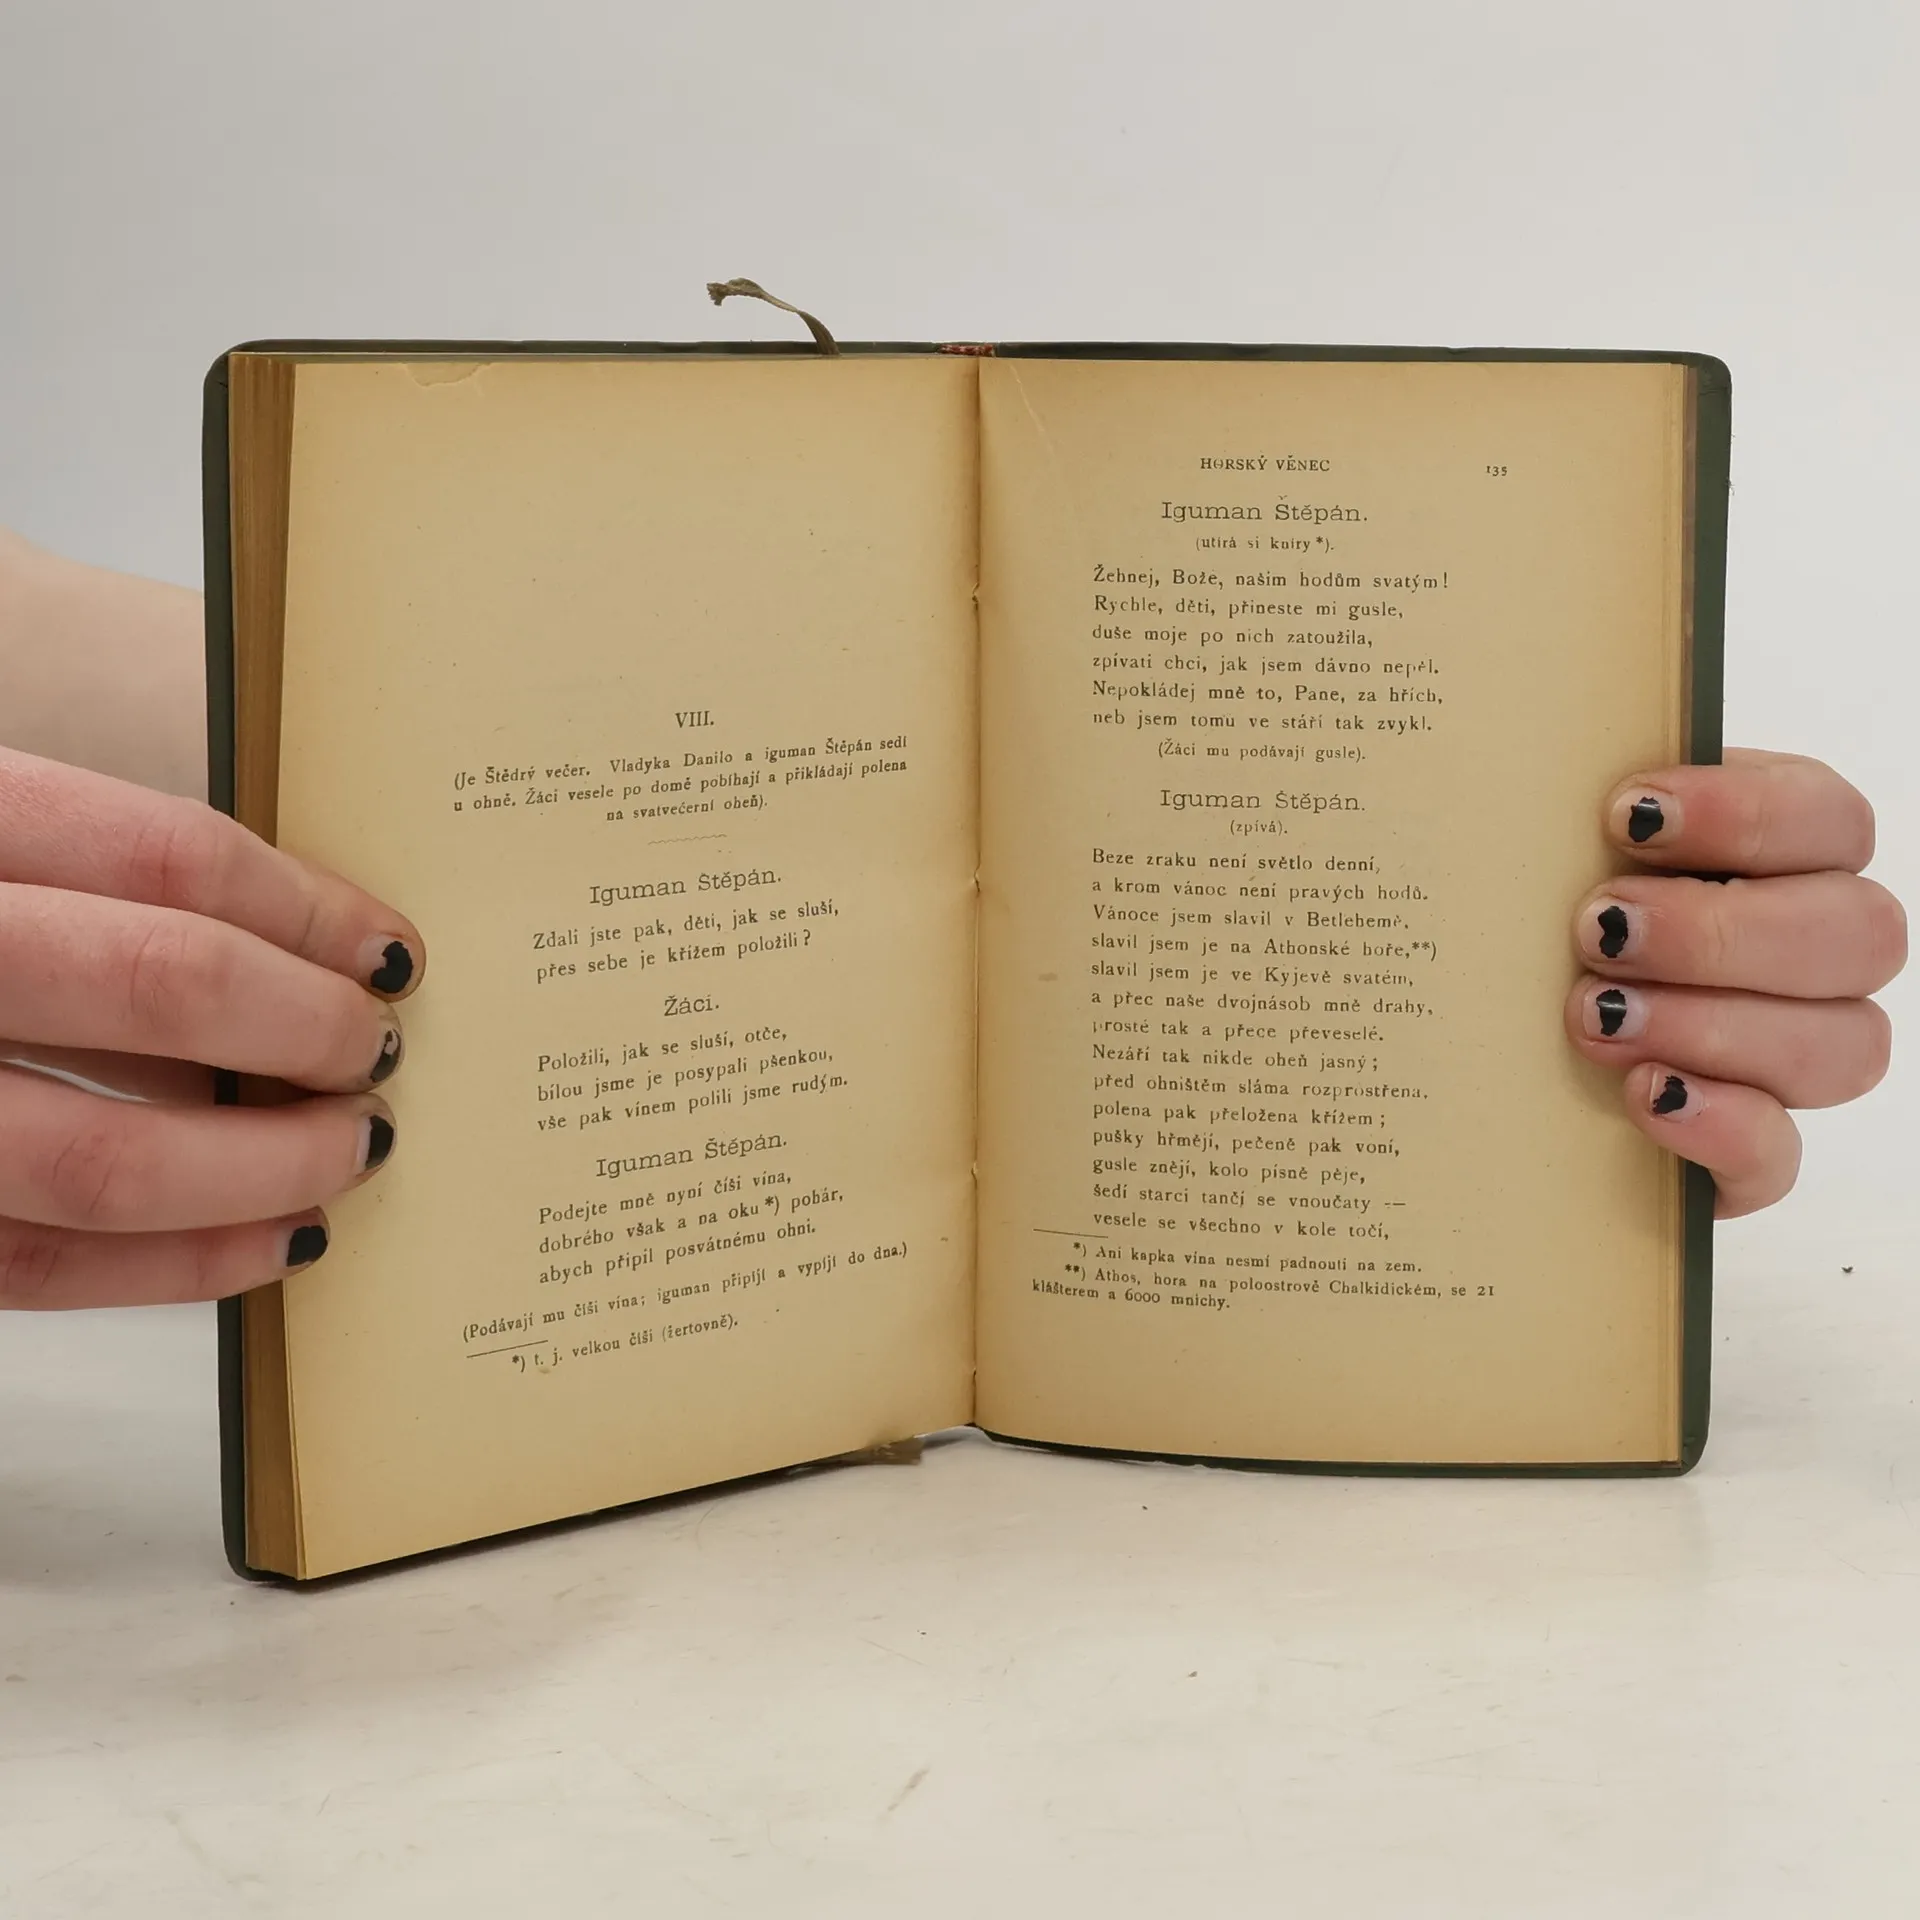 VIII.
(Je Štědrý večer. Vladyka Danilo a iguman Štěpán sedí
u ohně. Žáci vesele po domě pobíhají a přikládají polena
na svatvečerní oheň).
Iguman Štěpán.
Zdali jste pak, děti, jak se sluší,
přes sebe je křížem položili?
Žáci.
Položili, jak se sluší, otče,
bílou jsme je posypali pšenkou,
vše pak vínem polili jsme rudým.
Iguman Štěpán.
Podejte mně nyní číši vína,
dobrého však a na oku*) pohár,
abych připil posvátnému ohni.
(Podávají mu číši vína; iguman připíjí a vypíjí do dna.)
*) t. j. velkou číši (žertovně).
HORSKÝ VĚNEC 135
Iguman Štěpán.
(utírá si kníry*).
Žehnej, Bože, našim hodům svatým!
Rychle, děti, přineste mi gusle,
duše moje po nich zatoužila,
zpívati chci, jak jsem dávno nepěl.
Nepokládej mně to, Pane, za hřích,
neb jsem tomu ve stáří tak zvykl.
(Žáci mu podávají gusle).
Iguman Štěpán.
(zpívá).
Beze zraku není světlo denní,
a krom vánoc není pravých hodů.
Vánoce jsem slavil v Betlehemě,
slavil jsem je na Athonské hoře,**)
slavil jsem je ve Kyjevě svatém,
a přec naše dvojnásob mně drahy,
prosté tak a přece převeselé.
Nezáří tak nikde oheň jasný;
před ohništěm sláma rozprostřena,
polena pak přeložena křížem;
pušky hřmějí, pečeně pak voní,
gusle znějí, kolo písně pěje,
šedí starci tančí se vnoučaty —
vesele se všechno v kole točí,
*) Ani kapka vína nesmí padnouti na zem.
**) Athos, hora na poloostrově Chalkidickém, se 21
klášterem a 6000 mnichy.